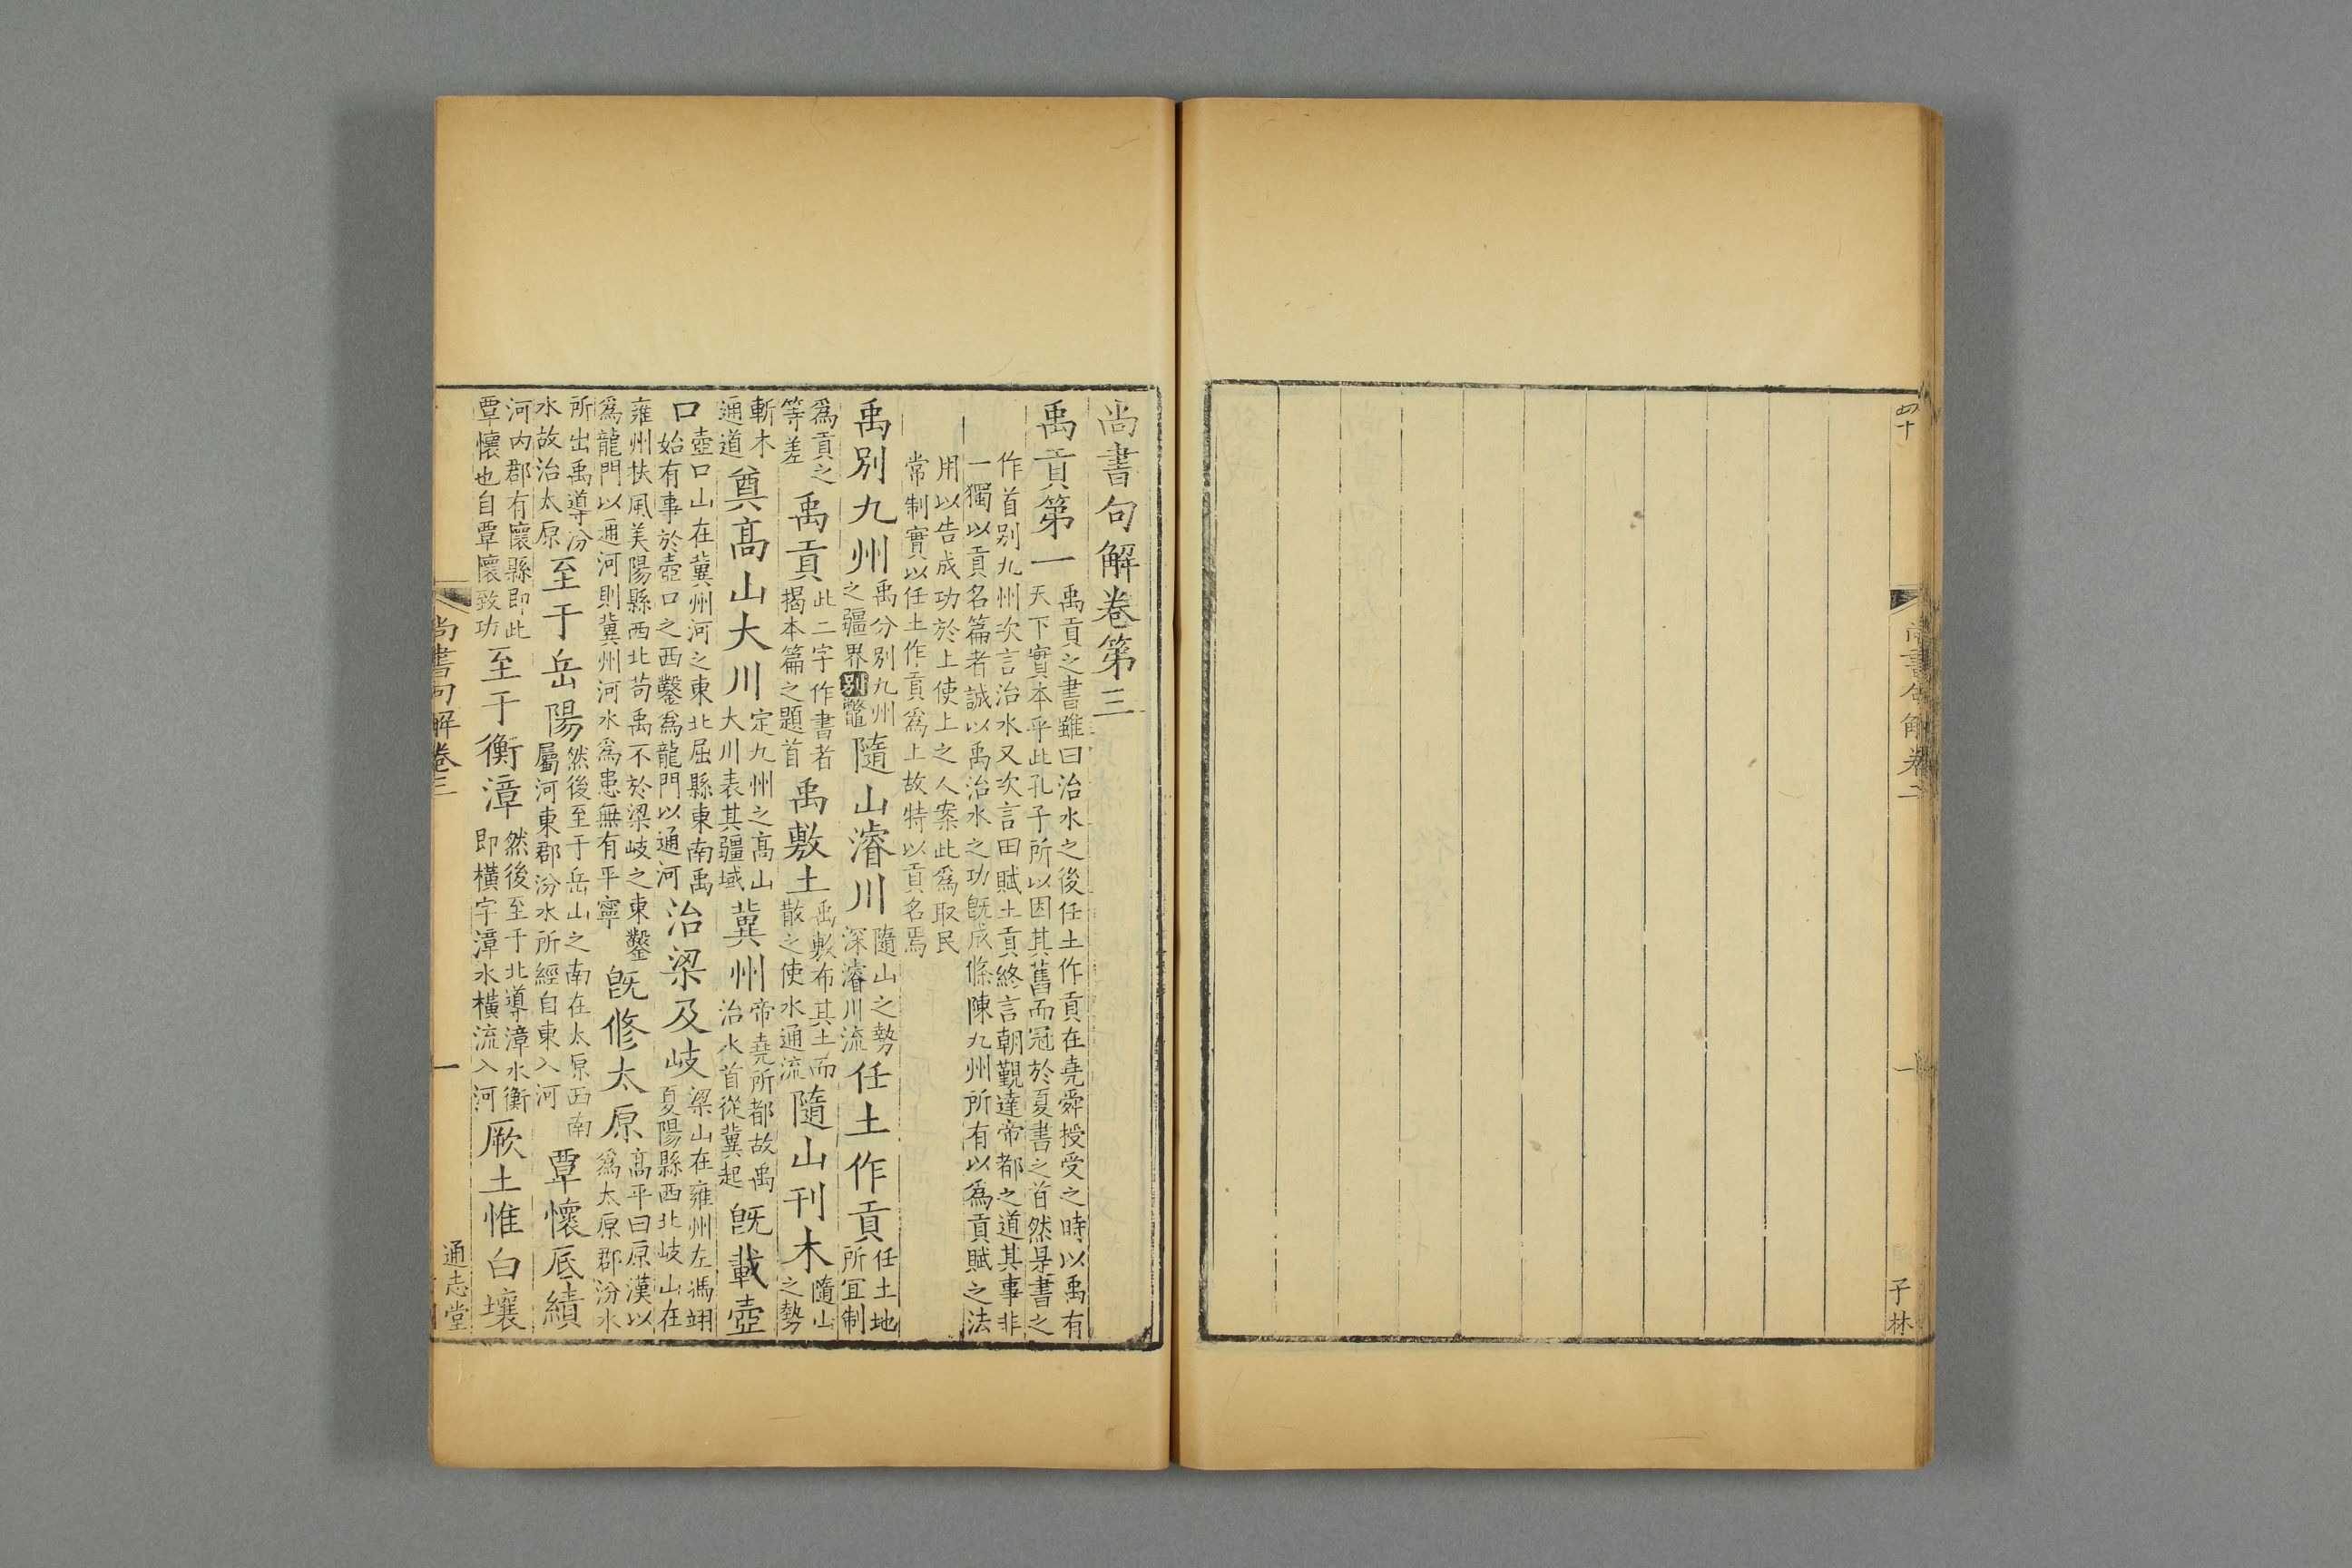 四十
尚書句解卷二
一
子林
尚書句解卷第三
禹貢第一禹貢之書雖曰治水之後任土作貢在堯舜授受之時以禹有天下實本乎此孔子所以因其舊而冠於夏書之首然是書之
作首别九州次言治水又次言田賦土貢終言朝覲達帝都之道其事非一獨以貢名篇者誠以禹治水之功旣成條陳九州所有以爲貢賦之法
用以告成功於上使上之人案此爲取民常制實以任土作貢爲上故特以貢名焉
禹别九州禹分别九州之疆界别鼈隨山濬川隨山之勢深濬川流任土作貢任土地所宜制
爲貢之等差禹貢此二字作書者揭本篇之題首禹敷土禹敷布其土而散之使水通流隨山刊木隨山之勢
斬木通道奠高山大川定九州之高山大川表其疆域冀州帝堯所都故禹治水首從冀起旣載壺
口壺口山在冀州河之東北屈縣東南禹始有事於壺口之西鑿爲龍門以通河治梁及岐梁山在雍州左馮翊夏陽縣西北岐山在
雍州扶風美陽縣西北苟禹不於梁岐之東鑿爲龍門以通河則冀州河水爲患無有平寧旣修太原高平曰原漢以爲太原郡汾水
所出禹導汾水故治太原至于岳陽然後至于岳山之南在太原西南屬河東郡汾水所經自東入河覃懷厎績
河内郡有懷縣即此覃懷也自覃懷致功至于衡漳然後至于北導漳水衡即橫字漳水橫流入河厥土惟白壤
尚書句解卷三
一
通志堂